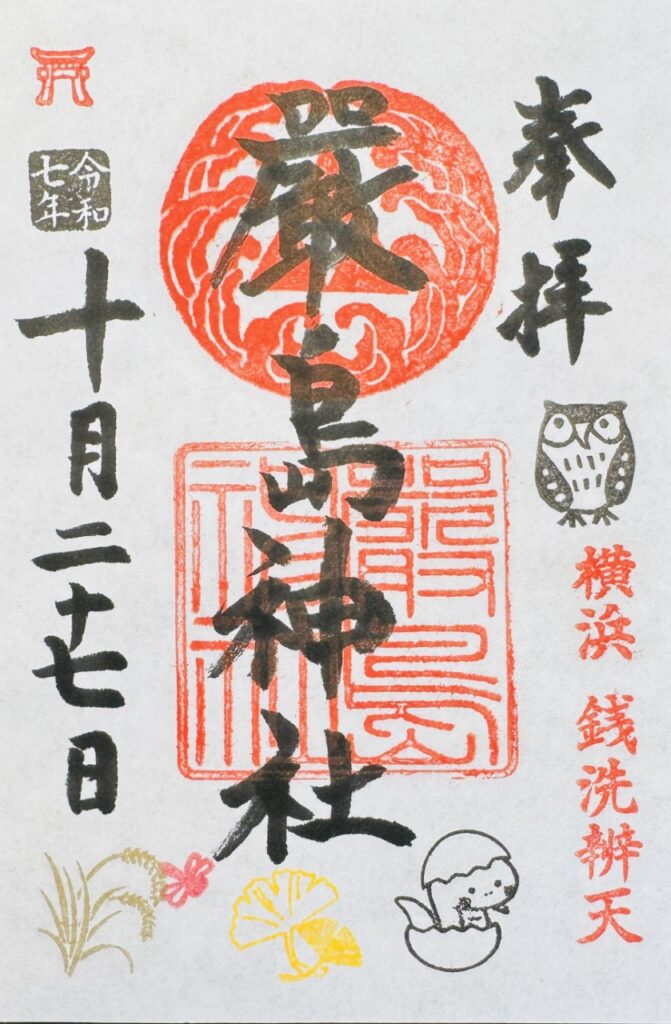 奉拝
横浜 銭洗辨天
嚴島神社
嚴島
神社
令和
七年
十月二十七日